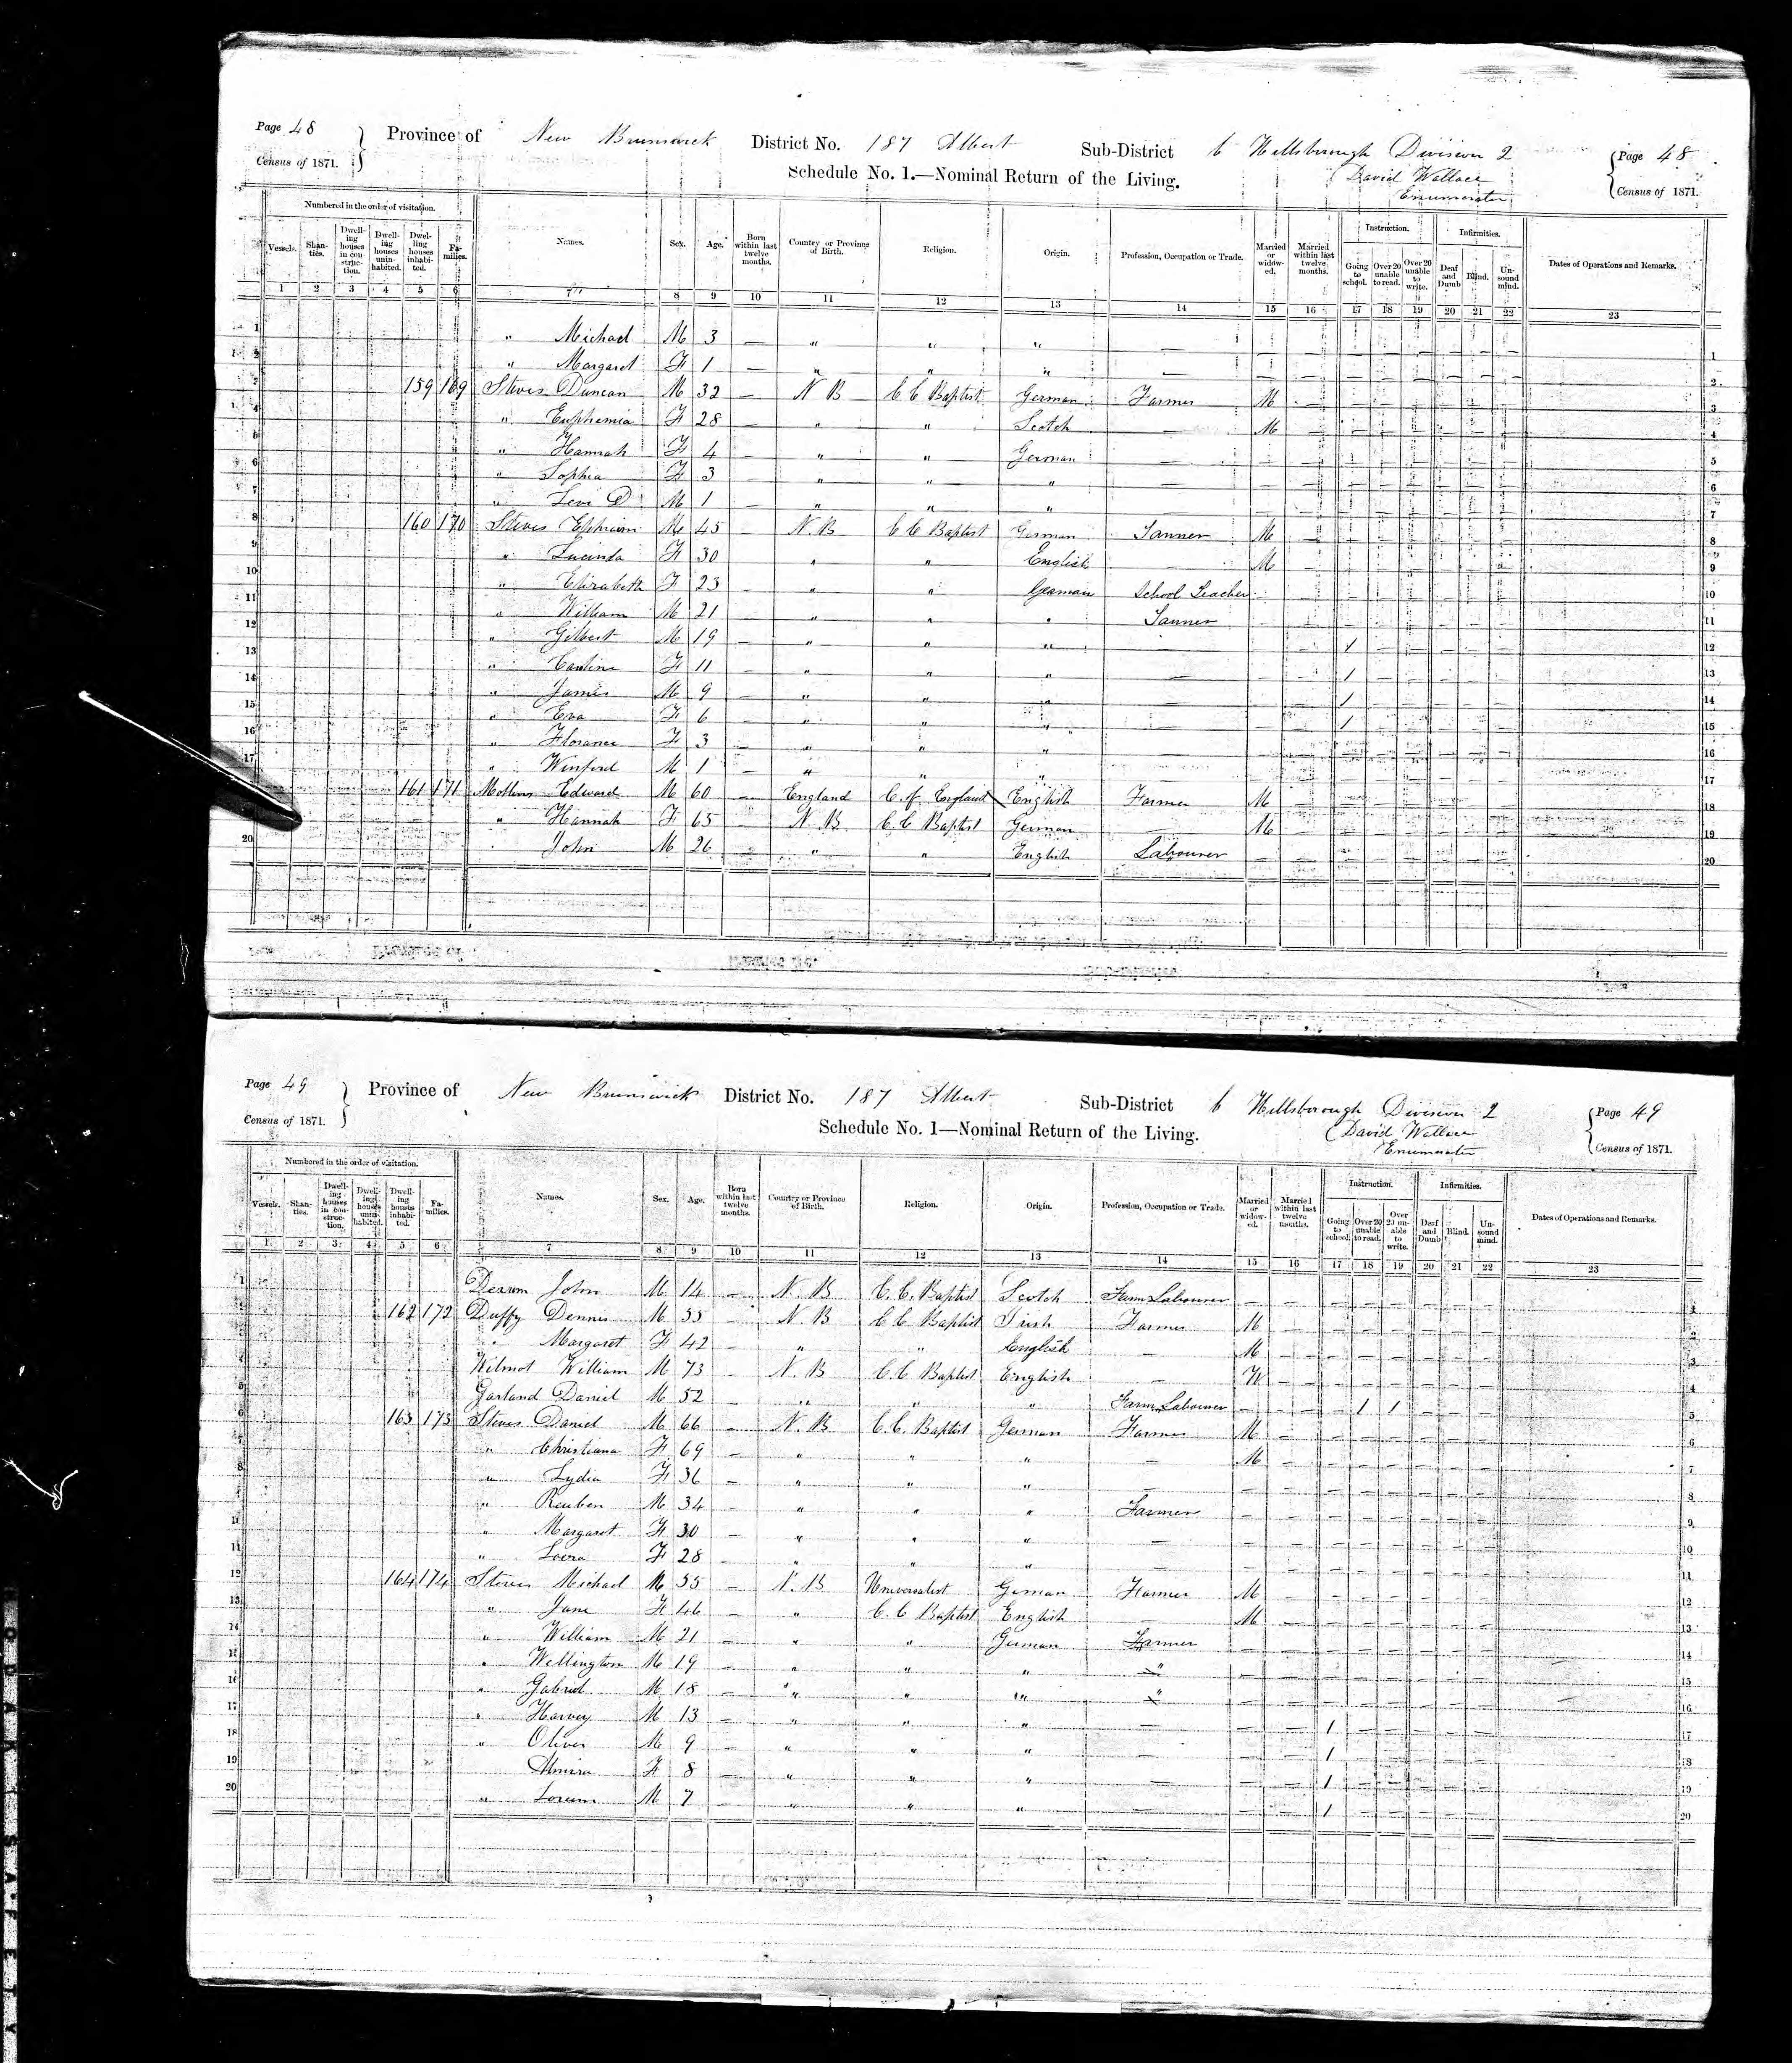 Page 48 Province of New Brunswick District No. 187 Albert Sub-District b Hillsborough Division 2 Page 48
Census of 1871. Schedule No. 1.—Nominal Return of the Living. David Wallace Census of 1871.
Enumerator
Numbered in the order of visitation. Instruction. Infirmities.
Vessels. Shanties. Dwelling houses in construction. Dwelling houses uninhabited. Dwelling houses inhabited. Families. Names. Sex. Age. Born within last twelve months. Country or Province of Birth. Religion. Origin. Profession, Occupation or Trade. Married or widowed. Married within last twelve months. Going to school. Over 20 unable to read. Over 20 unable to write. Deaf and Dumb Blind. Unsound mind. Dates of Operations and Remarks.
1 2 3 4 5 6 7 8 9 10 11 12 13 14 15 16 17 18 19 20 21 22 23
1 " Michael M 3 — " " " — 1
2 " Margaret F 1 — " " " — 2
3 159 169 Steves Duncan M 32 — N B C C Baptist German Farmer M 3
4 " Euphemia F 28 — " " Scotch — M 4
5 " Hannah F 4 — " " German — 5
6 " Sophia F 3 — " " " — 6
7 " Levi D M 1 — " " " — 7
8 160 170 Steves Ephraim M 45 — N. B C C Baptist German Tanner M 8
9 " Lucinda F 30 — " " English — M 9
10 " Elizabeth F 23 — " " German School Teacher 10
11 " William M 21 — " " " Tanner 11
12 " Gilbert M 19 — " " " — 1 12
13 " Caroline F 11 — " " " — 1 13
14 " James M 9 — " " " — 1 14
15 " Eva F 6 — " " " — 1 15
16 " Florance F 3 — " " " — 16
17 " Winford M 1 — " " " — 17
161 171 Mollins Edward M 60 — England C. of England English Farmer M 18
" Hannah F 65 — N. B. C C Baptist German — M 19
20 " John M 26 — " " English Labourer — 20
Page 49 Province of New Brunswick District No. 187 Albert Sub-District b Hillsborough Division 2 Page 49
Census of 1871. Schedule No. 1—Nominal Return of the Living. David Wallace Census of 1871.
Enumerator
Numbered in the order of visitation. Instruction. Infirmities.
Vessels. Shanties. Dwelling houses in construction. Dwelling houses uninhabited. Dwelling houses inhabited. Families. Names. Sex. Age. Born within last twelve months. Country or Province of Birth. Religion. Origin. Profession, Occupation or Trade. Married or widowed. Married within last twelve months. Going to school. Over 20 unable to read. Over 20 unable to write. Deaf and Dumb Blind. Unsound mind. Dates of Operations and Remarks.
1 2 3 4 5 6 7 8 9 10 11 12 13 14 15 16 17 18 19 20 21 22 23
1 John M 14 — N. B C. C. Baptist Scotch Farm Labourer — 1
2 162 172 Duffy Dennis M 55 — N. B C C Baptist Irish Farmer M 2
" Margaret F 42 — " " English — M 3
Wilmot William M 73 — N. B C. C Baptist English — W 4
5 Garland Daniel M 52 — " " " Farm Labourer — 1 1 5
6 163 173 Steves Daniel M 66 — N. B C. C. Baptist German Farmer M 6
" Christiana F 69 — " " " — M 7
8 " Lydia F 36 — " " " — 8
" Reuben M 34 — " " " Farmer — 9
" Margaret F 30 — " " " — 10
11 " F 28 — " " " — 11
12 164 174 Steves Michael M 55 — N. B Universalist German Farmer M 12
13 " Jane F 46 — " C. C Baptist English — M 13
14 " William M 21 — " " German Farmer — 14
15 " Wellington M 19 — " " " " — 15
16 " Gabriel M 18 — " " " " — 16
17 " Harvey M 13 — " " " — 1 17
18 " Oliver M 9 — " " " — 1 18
19 Almira F 8 — " " " — 1 19
20 " M 7 — " " " — 1 20